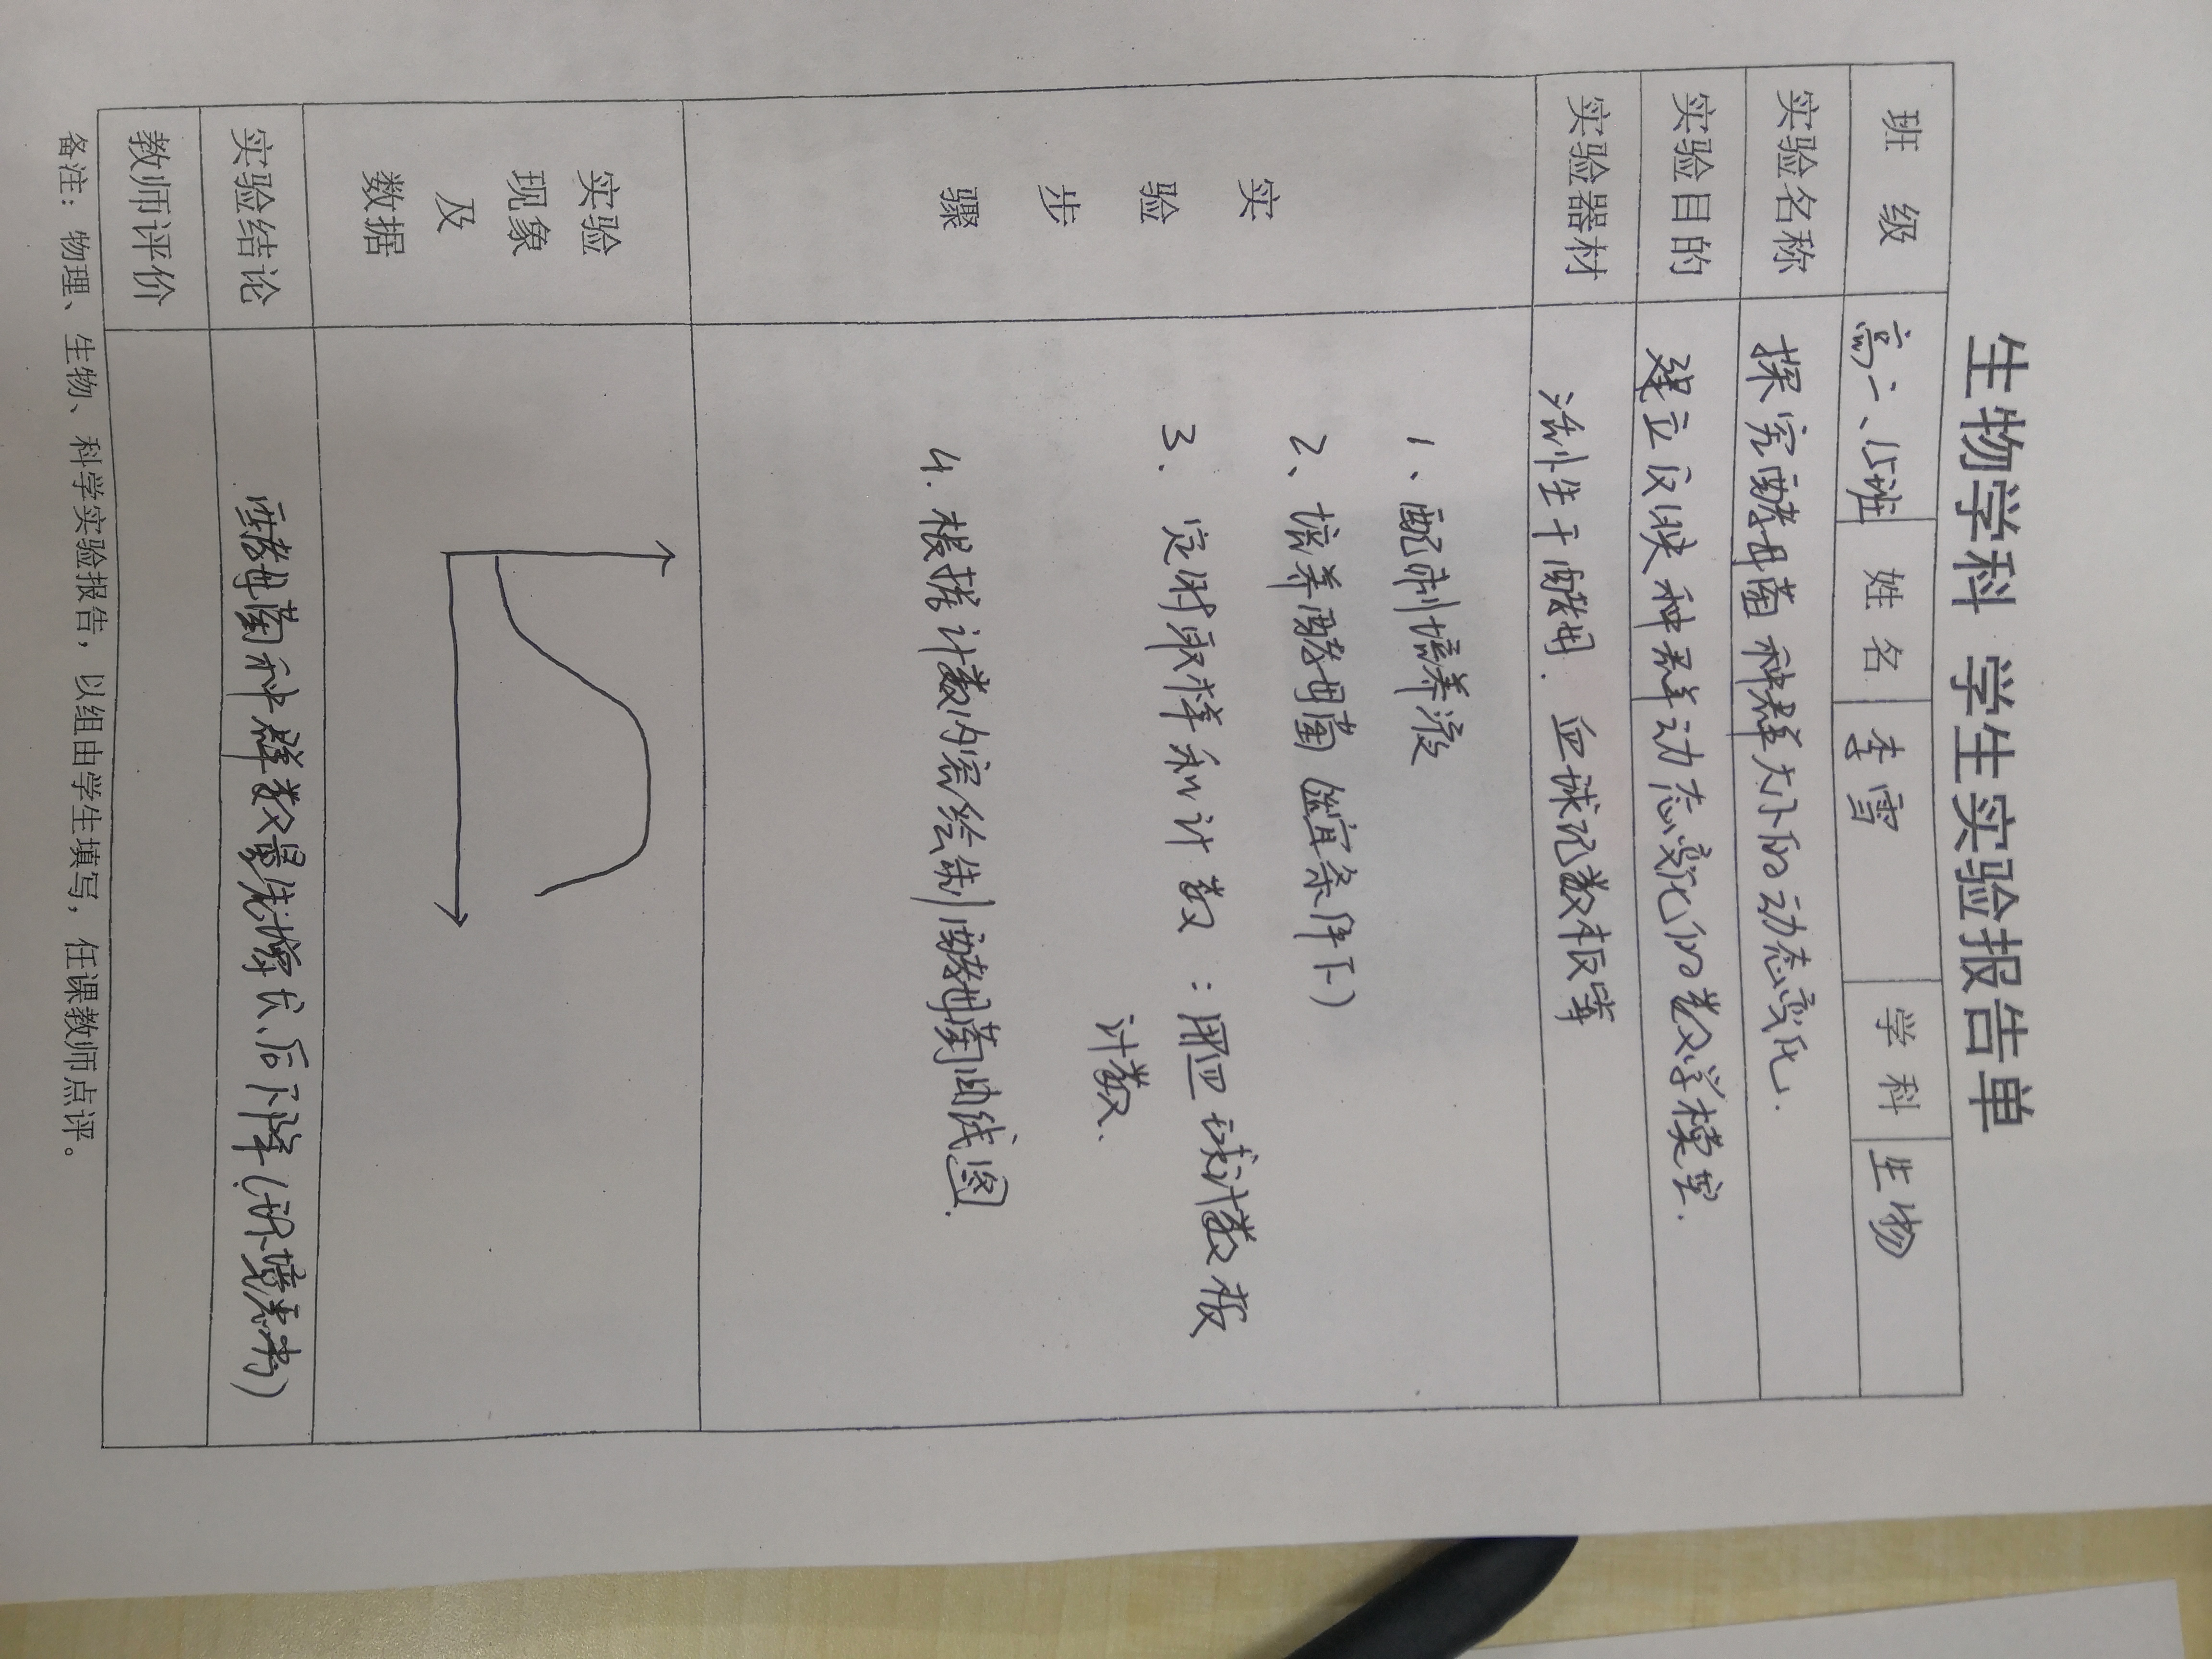 生物学科 学生实验报告单
班 级 高二、15班 姓 名 李雪 学 科 生物
实验名称 探究酵母菌种群大小的动态变化.
实验目的 建立反映种群动态变化的数学模型.
实验器材 活性生干酵母. 血球记数板等
实验步骤
1、配制培养液
2、培养酵母菌(适宜条件下)
3、定时取样和计数:用血球计数板
计数.
4.根据计数内容绘制酵母菌曲线图.
实验
现象
及
数据
实验结论 酵母菌种群数量先增长后下降(环境影响)
教师评价
备注:物理、生物、科学实验报告,以组由学生填写,任课教师点评。